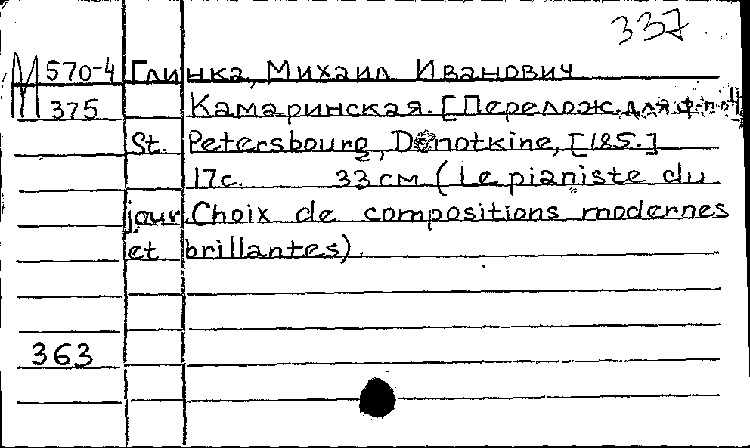 337
М 570-4 Глинка, Михаил Иванович
375 Камаринская. [Перелож. для ф-п.]
St. Petersbourg, Denotkine, [185.]
17с. 33 см (Le pianiste du
jour. Choix de compositions modernes
et brillantes).
363